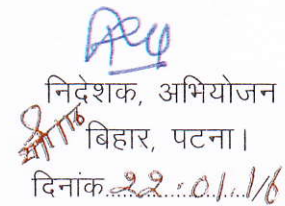 निदेशक, अभियोजन
बिहार, पटना।
दिनांक 22.01.16